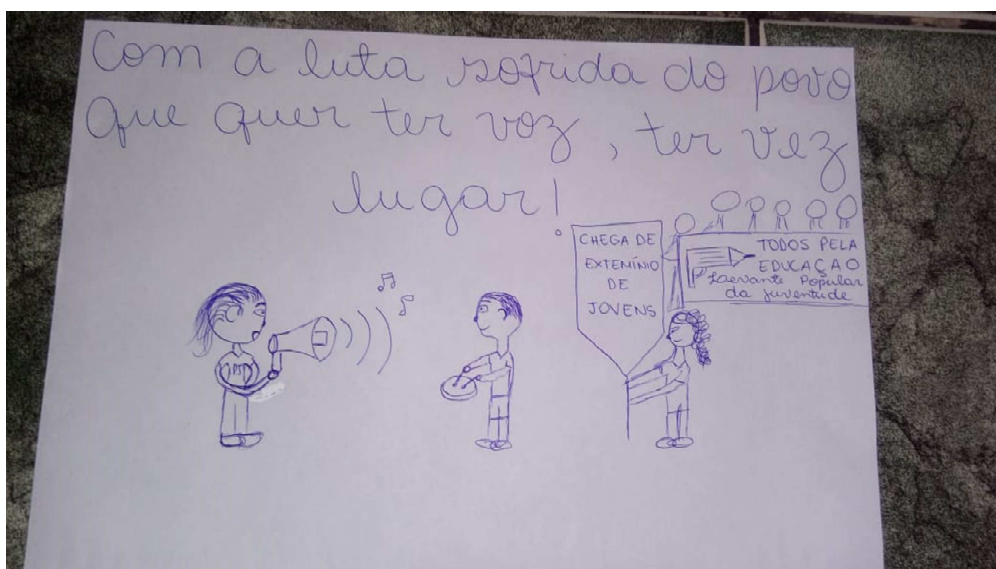 Com a luta sofrida do povo
Que quer ter voz, ter vez
lugar!
CHEGA DE
EXTEMÍNIO
DE
JOVENS
TODOS PELA
EDUCAÇAO
Laevante Popular
da juventude